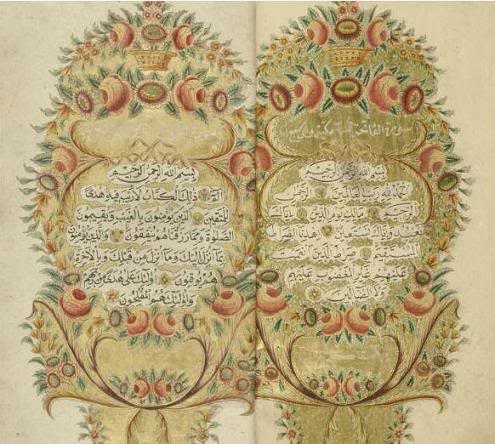 سورة الفاتحة مكية وهي سبع
بِسْمِ اللهِ الرَّحْمنِ الرَّحِيمِ
اَلْحَمْدُ لِلّهِ رَبِّ الْعَالَمِينَ اَلرَّحْمنِ
الرَّحِيمِ مَالِكِ يَوْمِ الدِّينِ اِيَّاكَ
نَعْبُدُ وَاِيَّاكَ نَسْتَعِينُ اِهْدِنَا الصِّرَاطَ
الْمُسْتَقِيمَ صِرَاطَ الَّذِينَ اَنْعَمْتَ
عَلَيْهِمْ غَيْرِ الْمَغْضُوبِ عَلَيْهِمْ
وَلَا الضَّالِّينَ
بِسْمِ اللهِ الرَّحْمنِ الرَّحِيمِ
الم ذلِكَ الْكِتَابُ لَا رَيْبَ فِيهِ هُدًى
لِلْمُتَّقِينَ اَلَّذِينَ يُؤْمِنُونَ بِالْغَيْبِ وَيُقِيمُونَ
الصَّلوةَ وَمِمَّا رَزَقْنَاهُمْ يُنْفِقُونَ وَالَّذِينَ يُؤْمِنُونَ
بِمَا اُنْزِلَ اِلَيْكَ وَمَا اُنْزِلَ مِنْ قَبْلِكَ وَبِالْاخِرَةِ
هُمْ يُوقِنُونَ اُولئِكَ عَلى هُدًى مِنْ رَبِّهِمْ
وَاُولئِكَ هُمُ الْمُفْلِحُونَ